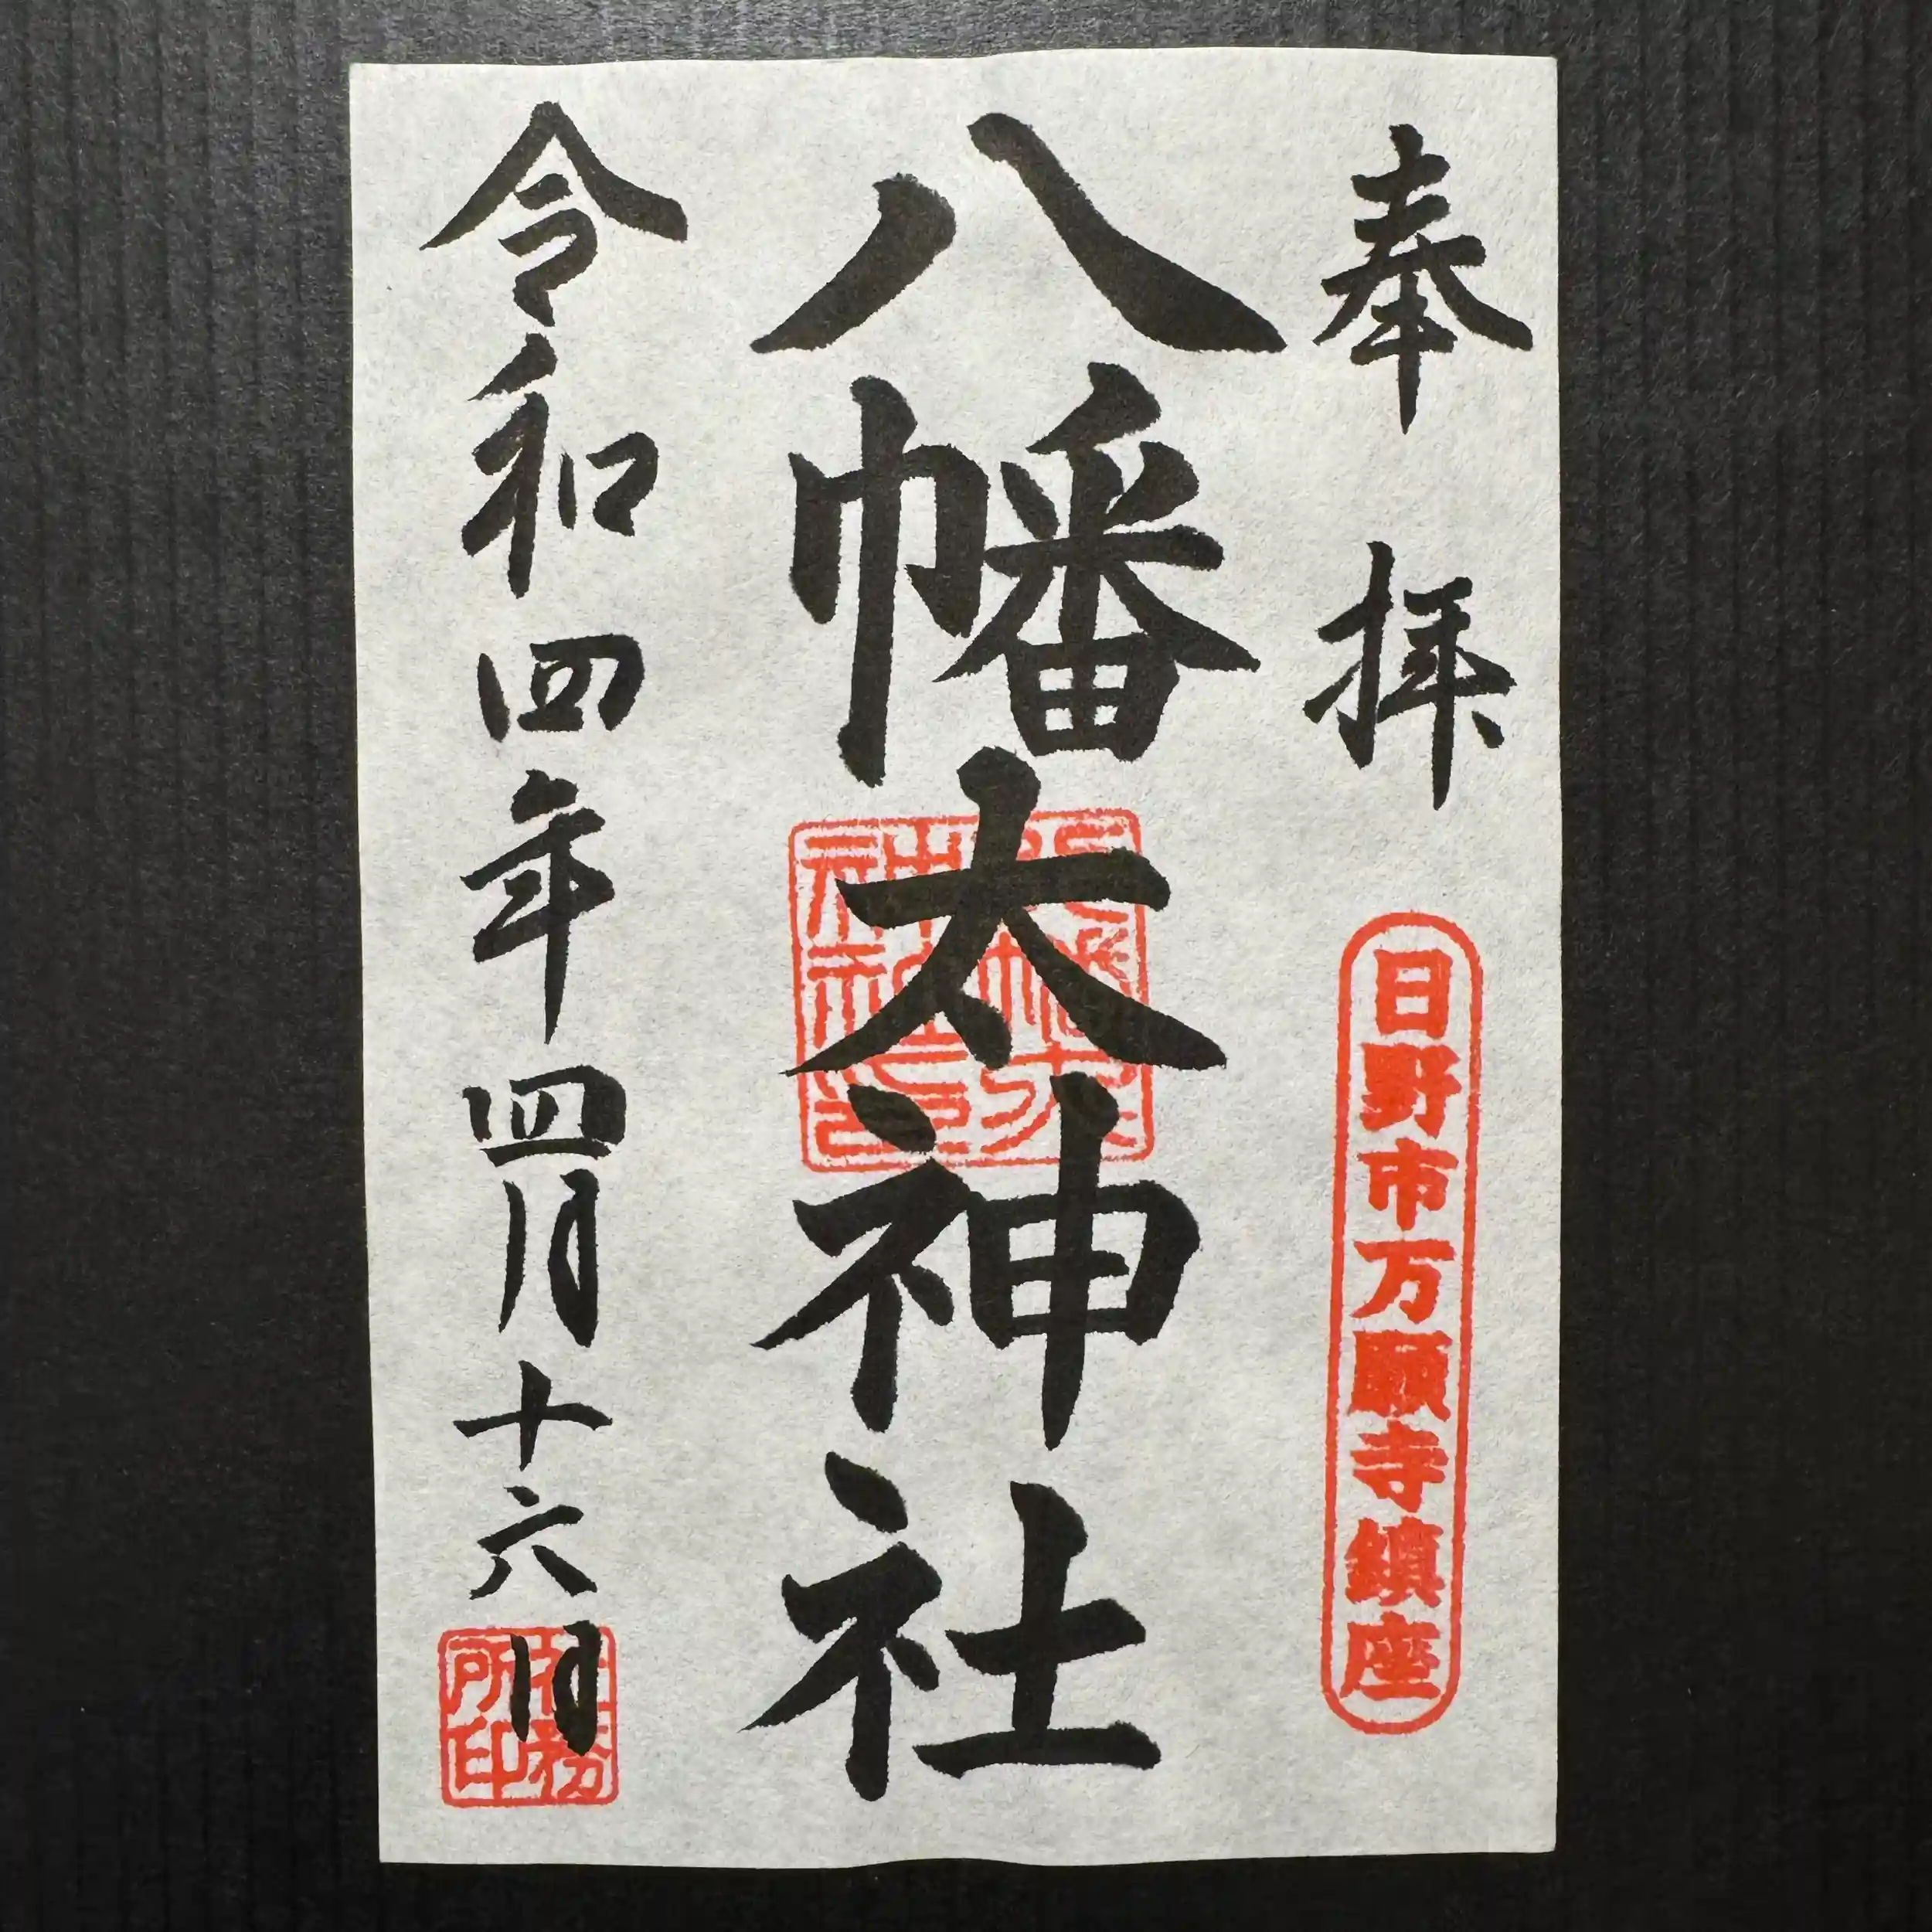 奉拝
日野市万願寺鎮座
八幡太神社
令和四年四月十六日
社務所印